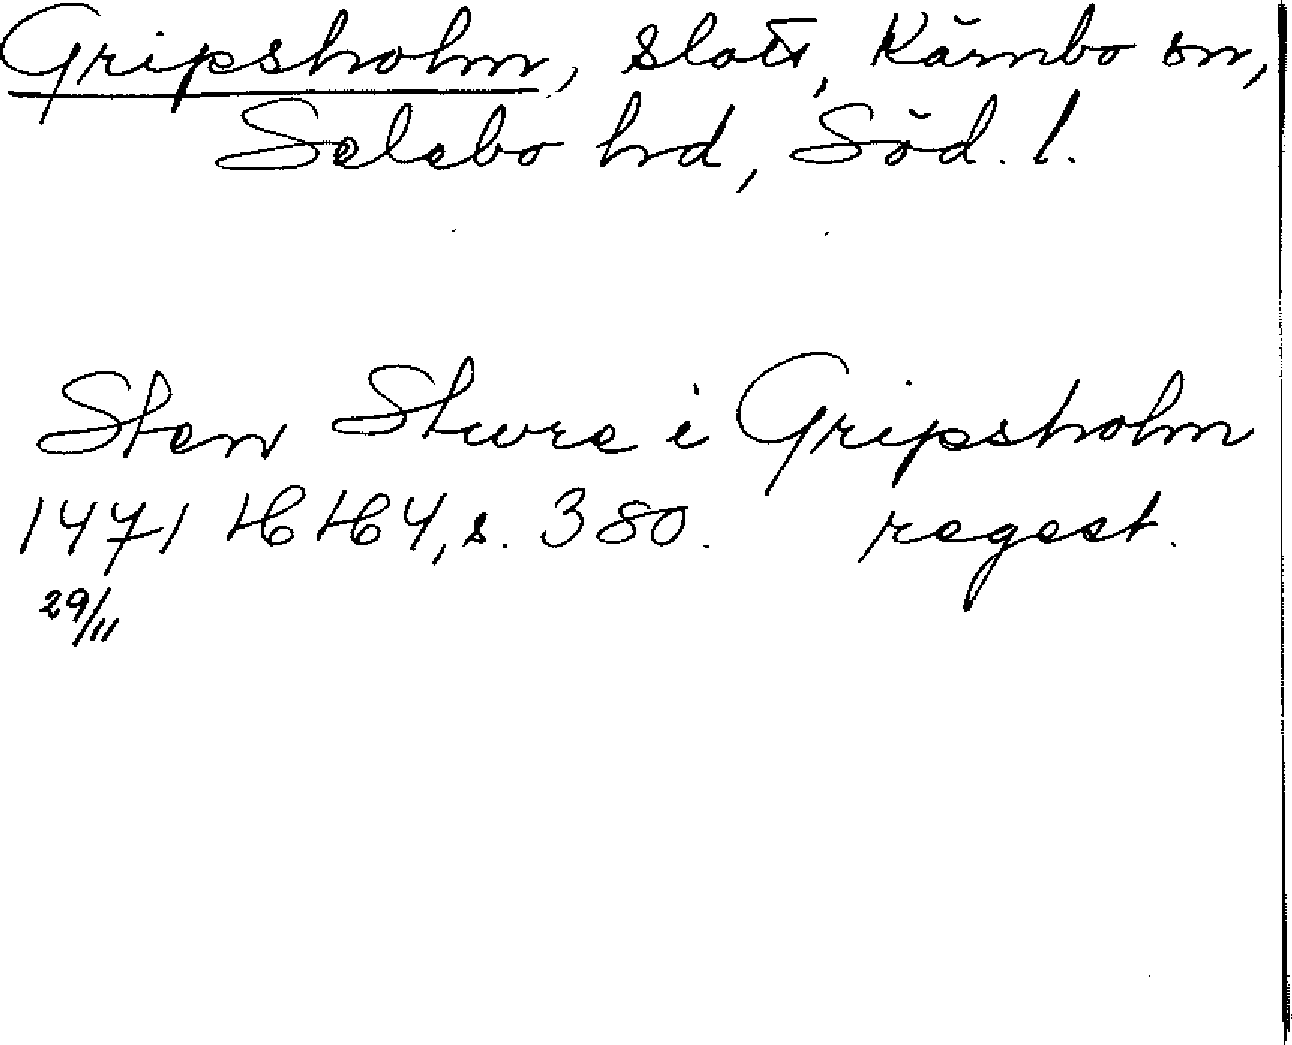 Gripsholm, slott, Kärnbo sn,
Selebo hd, Söd. l.
Sten Sture i Gripsholm
1471 HH 4, s. 380. regest.
29/11